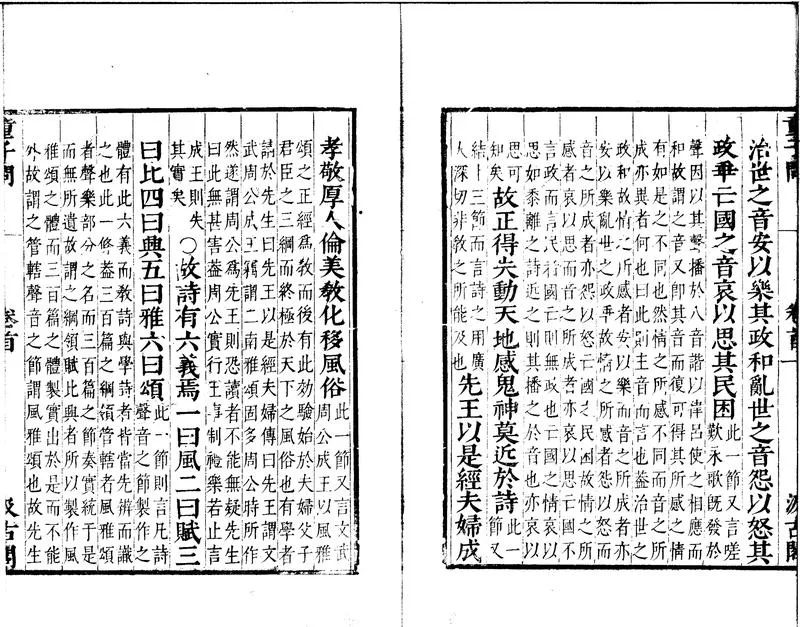 童子問 卷首 一 汲古閣
治世之音安以樂其政和亂世之音怨以怒其
政乖亡國之音哀以思其民困
此一節又言嗟
歎永歌旣發於
聲因以其聲播於八音諧以律呂使之相應而
和故謂之音又卽其音而復可得其所感之情
有如是之不同也然情之所感不同而音之所
成亦異者何也曰此則主音而言也蓋治世之
政和故情之所感者安以樂而音之所成者亦
安以樂亂世之政乖故情之所感者怨以怒而
音之所成者亦怨以怒亡國之民困故情之所
感者哀以思而音之所成者亦哀以思亡國不
言政而言民者國亡則無政也亡國之情哀以
思如黍離之詩近之則其播之於音也亦哀以
思可
知矣
故正得失動天地感鬼神莫近於詩
此一
節又
結上三節而言詩之用廣
大深切非敎之所能及也
先王以是經夫婦成
孝敬厚人倫美敎化移風俗
此一節又言文武
周公成王以風雅
頌之正經爲敎而後有此效驗始於夫婦父子
君臣之三綱而終極於天下之風俗也有學者
請於先生曰先王以是經夫婦傳曰先王謂文
武周公成王竊謂二南雅頌固多周公時所作
然遂謂周公爲先王則恐讀者不能無疑先生
曰此無甚害蓋周公實行王事制禮樂若止言
成王則失
其實矣
○故詩有六義焉一曰風二曰賦三
曰比四曰興五曰雅六曰頌
此一節則言凡詩
聲音之節製作之
體有此六義而敎詩與學詩者皆當先辨而識
之也此一條蓋三百篇之綱領管轄者風雅頌
者聲樂部分之名而三百篇之節奏實統于是
而無所遺故謂之綱領賦比興者所以製作風
雅頌之體而三百篇之體製實出於是而不能
外故謂之管轄聲音之節謂風雅頌也故先生
童子問 卷首 汲古閣